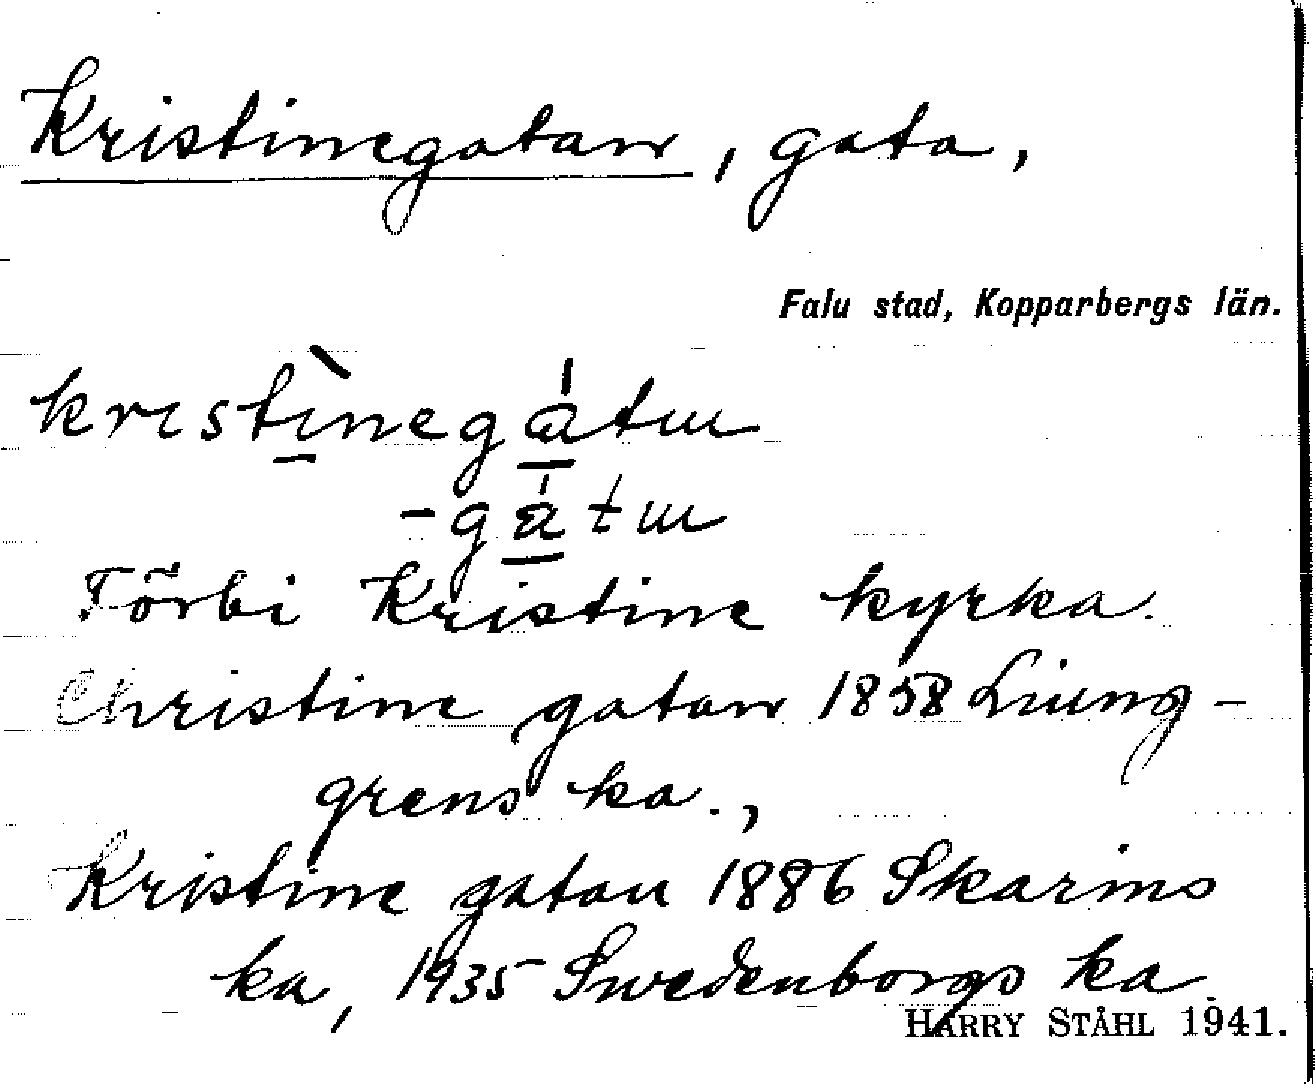 Kristinegatan, gata,
Falu stad, Kopparbergs län.
kristìnegàtɯ
-gàtɯ
Förbi Kristine kyrka.
Christine gatan 1858 Liung-
grens ka.,
Kristine gatan 1886 Skarins
ka, 1935 Swedenborgs ka.
HARRY STÅHL 1941.